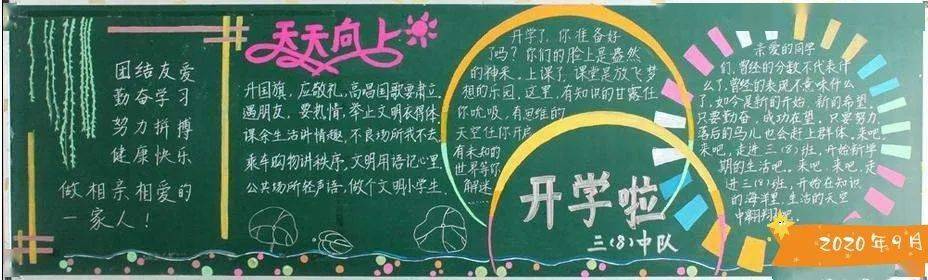 团结友爱
勤奋学习
努力拼搏
健康快乐
做相亲相爱的
一家人！
天天向上
升国旗，应敬礼，高唱国歌要肃立。
遇朋友，要热情，举止文明衣得体
课余生活讲情趣，不良场所我不去。
乘车购物讲秩序，文明用语记心里。
公共场所轻声语，做个文明小学生。
开学了，你准备好
了吗？你们的脸上是盎然
的神采，上课了，课堂是放飞梦
想的乐园，这里，有知识的甘露任
你吮吸，有思维的
天空任你开启
有未知的
世界等你
解迷
开学啦
三(8)中队
亲爱的同学
们，曾经的分数不代表什
么了，曾经的表现不意味什么
了，如今是新的开始，新的希望。
只要勤奋，成功在望。只要努力，
落后的马儿也会赶上群体。来吧，
来吧，走进三(8)班，开始新学
期的生活吧。来吧，来吧，走
进三(8)班，开始在知识
的海洋里，生活的天空
中翱翔吧。
2020年9月